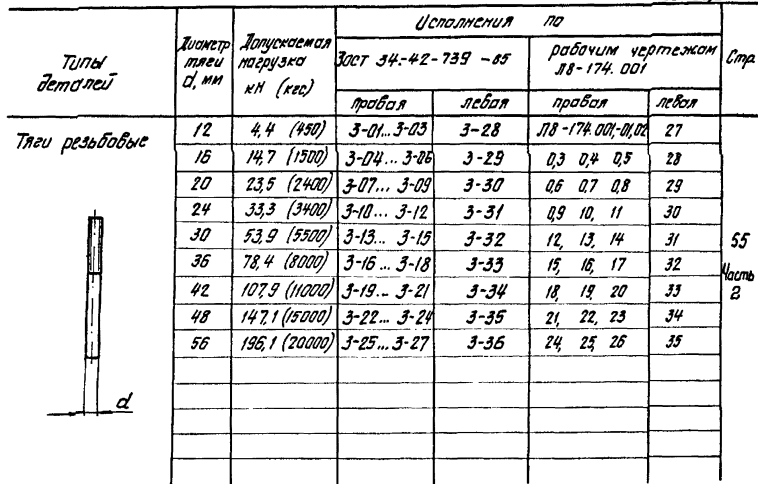 Типы деталей | Диаметр тяги d, мм | Допускаемая нагрузка кН (кгс) | Исполнения по | Стр
3ост 34-42-739-85 | рабочим чертежам Л8-174.001
правая | левая | правая | левая
Тяги резьбовые | 12 | 4,4 (450) | 3-01...3-03 | 3-28 | Л8-174.001,-01,02 | 27
16 | 14,7 (1500) | 3-04...3-06 | 3-29 | 0,3 0,4 0,5 | 28
20 | 23,5 (2400) | 3-07...3-09 | 3-30 | 0,6 0,7 0,8 | 29
24 | 33,3 (3400) | 3-10...3-12 | 3-31 | 0,9 10, 11 | 30
30 | 53,9 (5500) | 3-13...3-15 | 3-32 | 12, 13, 14 | 31 | 55
36 | 78,4 (8000) | 3-16...3-18 | 3-33 | 15, 16, 17 | 32 | Часть
42 | 107,9 (11000) | 3-19...3-21 | 3-34 | 18, 19, 20 | 33 | 2
48 | 147,1 (15000) | 3-22...3-24 | 3-35 | 21, 22, 23 | 34
56 | 196,1 (20000) | 3-25...3-27 | 3-36 | 24, 25, 26 | 35
d